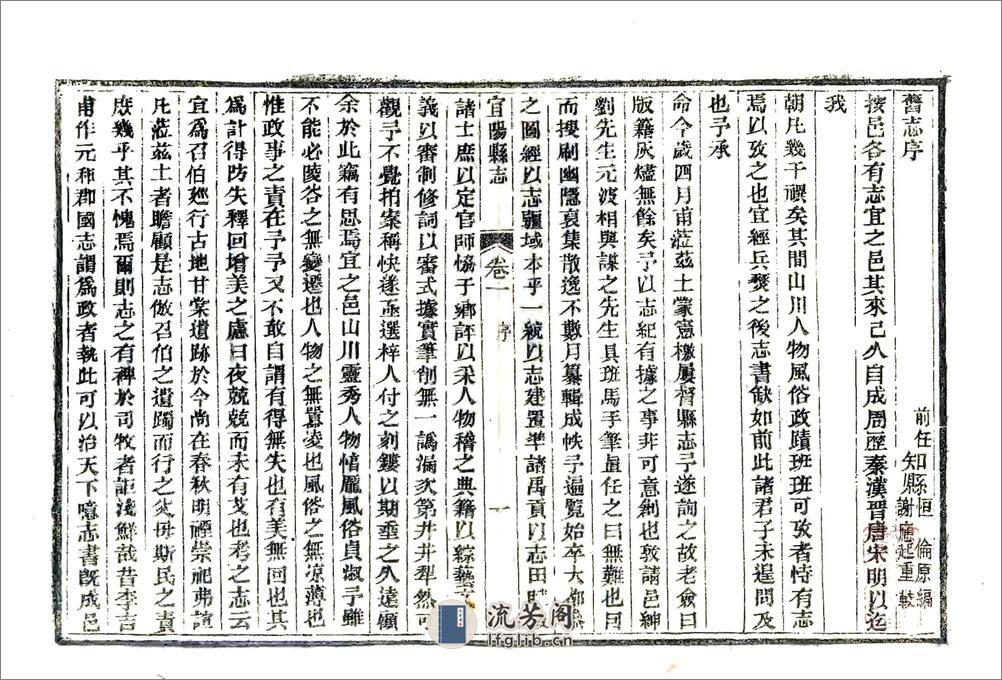 舊志序
前任知縣恒倫原編
知縣謝應起重輯
按邑各有志宜之邑其來已久自成周歷秦漢晉唐宋明以迄
我
朝凡幾千禩矣其間山川人物風俗政蹟班班可攷者恃有志
焉以攷之也宜經兵燹之後志書缺如前此諸君子未遑問及
也予承
命今歲四月甫蒞茲土蒙憲檄屢督縣志予遂詢之故老僉曰
版籍灰燼無餘矣予以志紀有據之事非可意創也敦請邑紳
劉先生元波相與謀之先生具班馬手筆直任之曰無難也因
而搜刷幽隱裒集散逸不數月纂輯成帙予遍覽始卒大都
之圖經以志疆域本乎一統以志建置準諸禹貢以志田賦
宜陽縣志
卷一
序
一
諸士庶以定官師恊于鄉評以采人物稽之典籍以綜藝文
義以審制修詞以審式據實筆削無一譌漏次第井井犁然可
觀予不覺拍案稱快遂亟選梓人付之刻鏤以期垂之久遠顧
余於此竊有思焉宜之邑山川靈秀人物惇龐風俗貞淑予雖
不能必陵谷之無變遷也人物之無囂凌也風俗之無涼薄也
惟政事之責在予予又不敢自謂有得無失也有美無回也其
為計得防失釋回增美之慮日夜兢兢而未有艾也考之志云
宜為召伯廵行古地甘棠遺跡於今尚在春秋明禋崇祀弗諠
凡蒞茲土者瞻顧是志倣召伯之遺躅而行之於毋斯民之責
庶幾乎其不愧焉爾則志之有裨於司牧者詎淺鮮哉昔李吉
甫作元和郡國志謂為政者執此可以治天下噫志書旣成邑
流芳阁
lfglib.cn